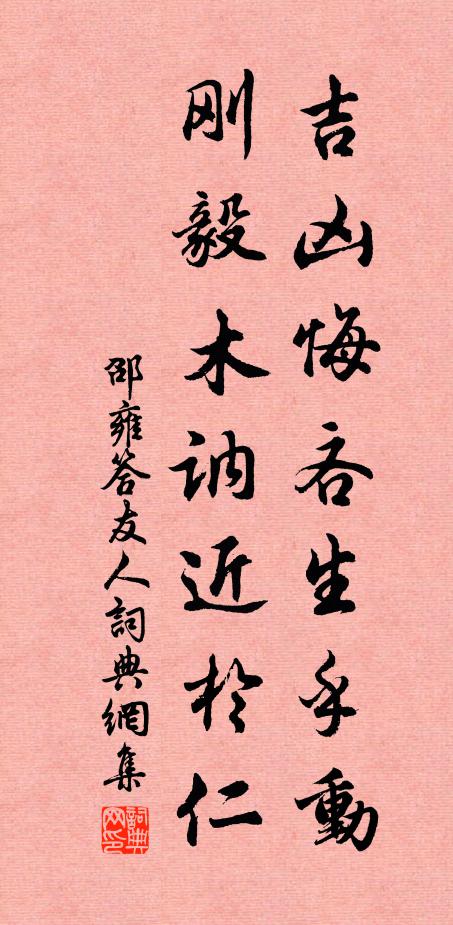 吉凶悔吝生乎動
刚毅木訥近於仁
邵雍答友人詞典網集
詞典
网印